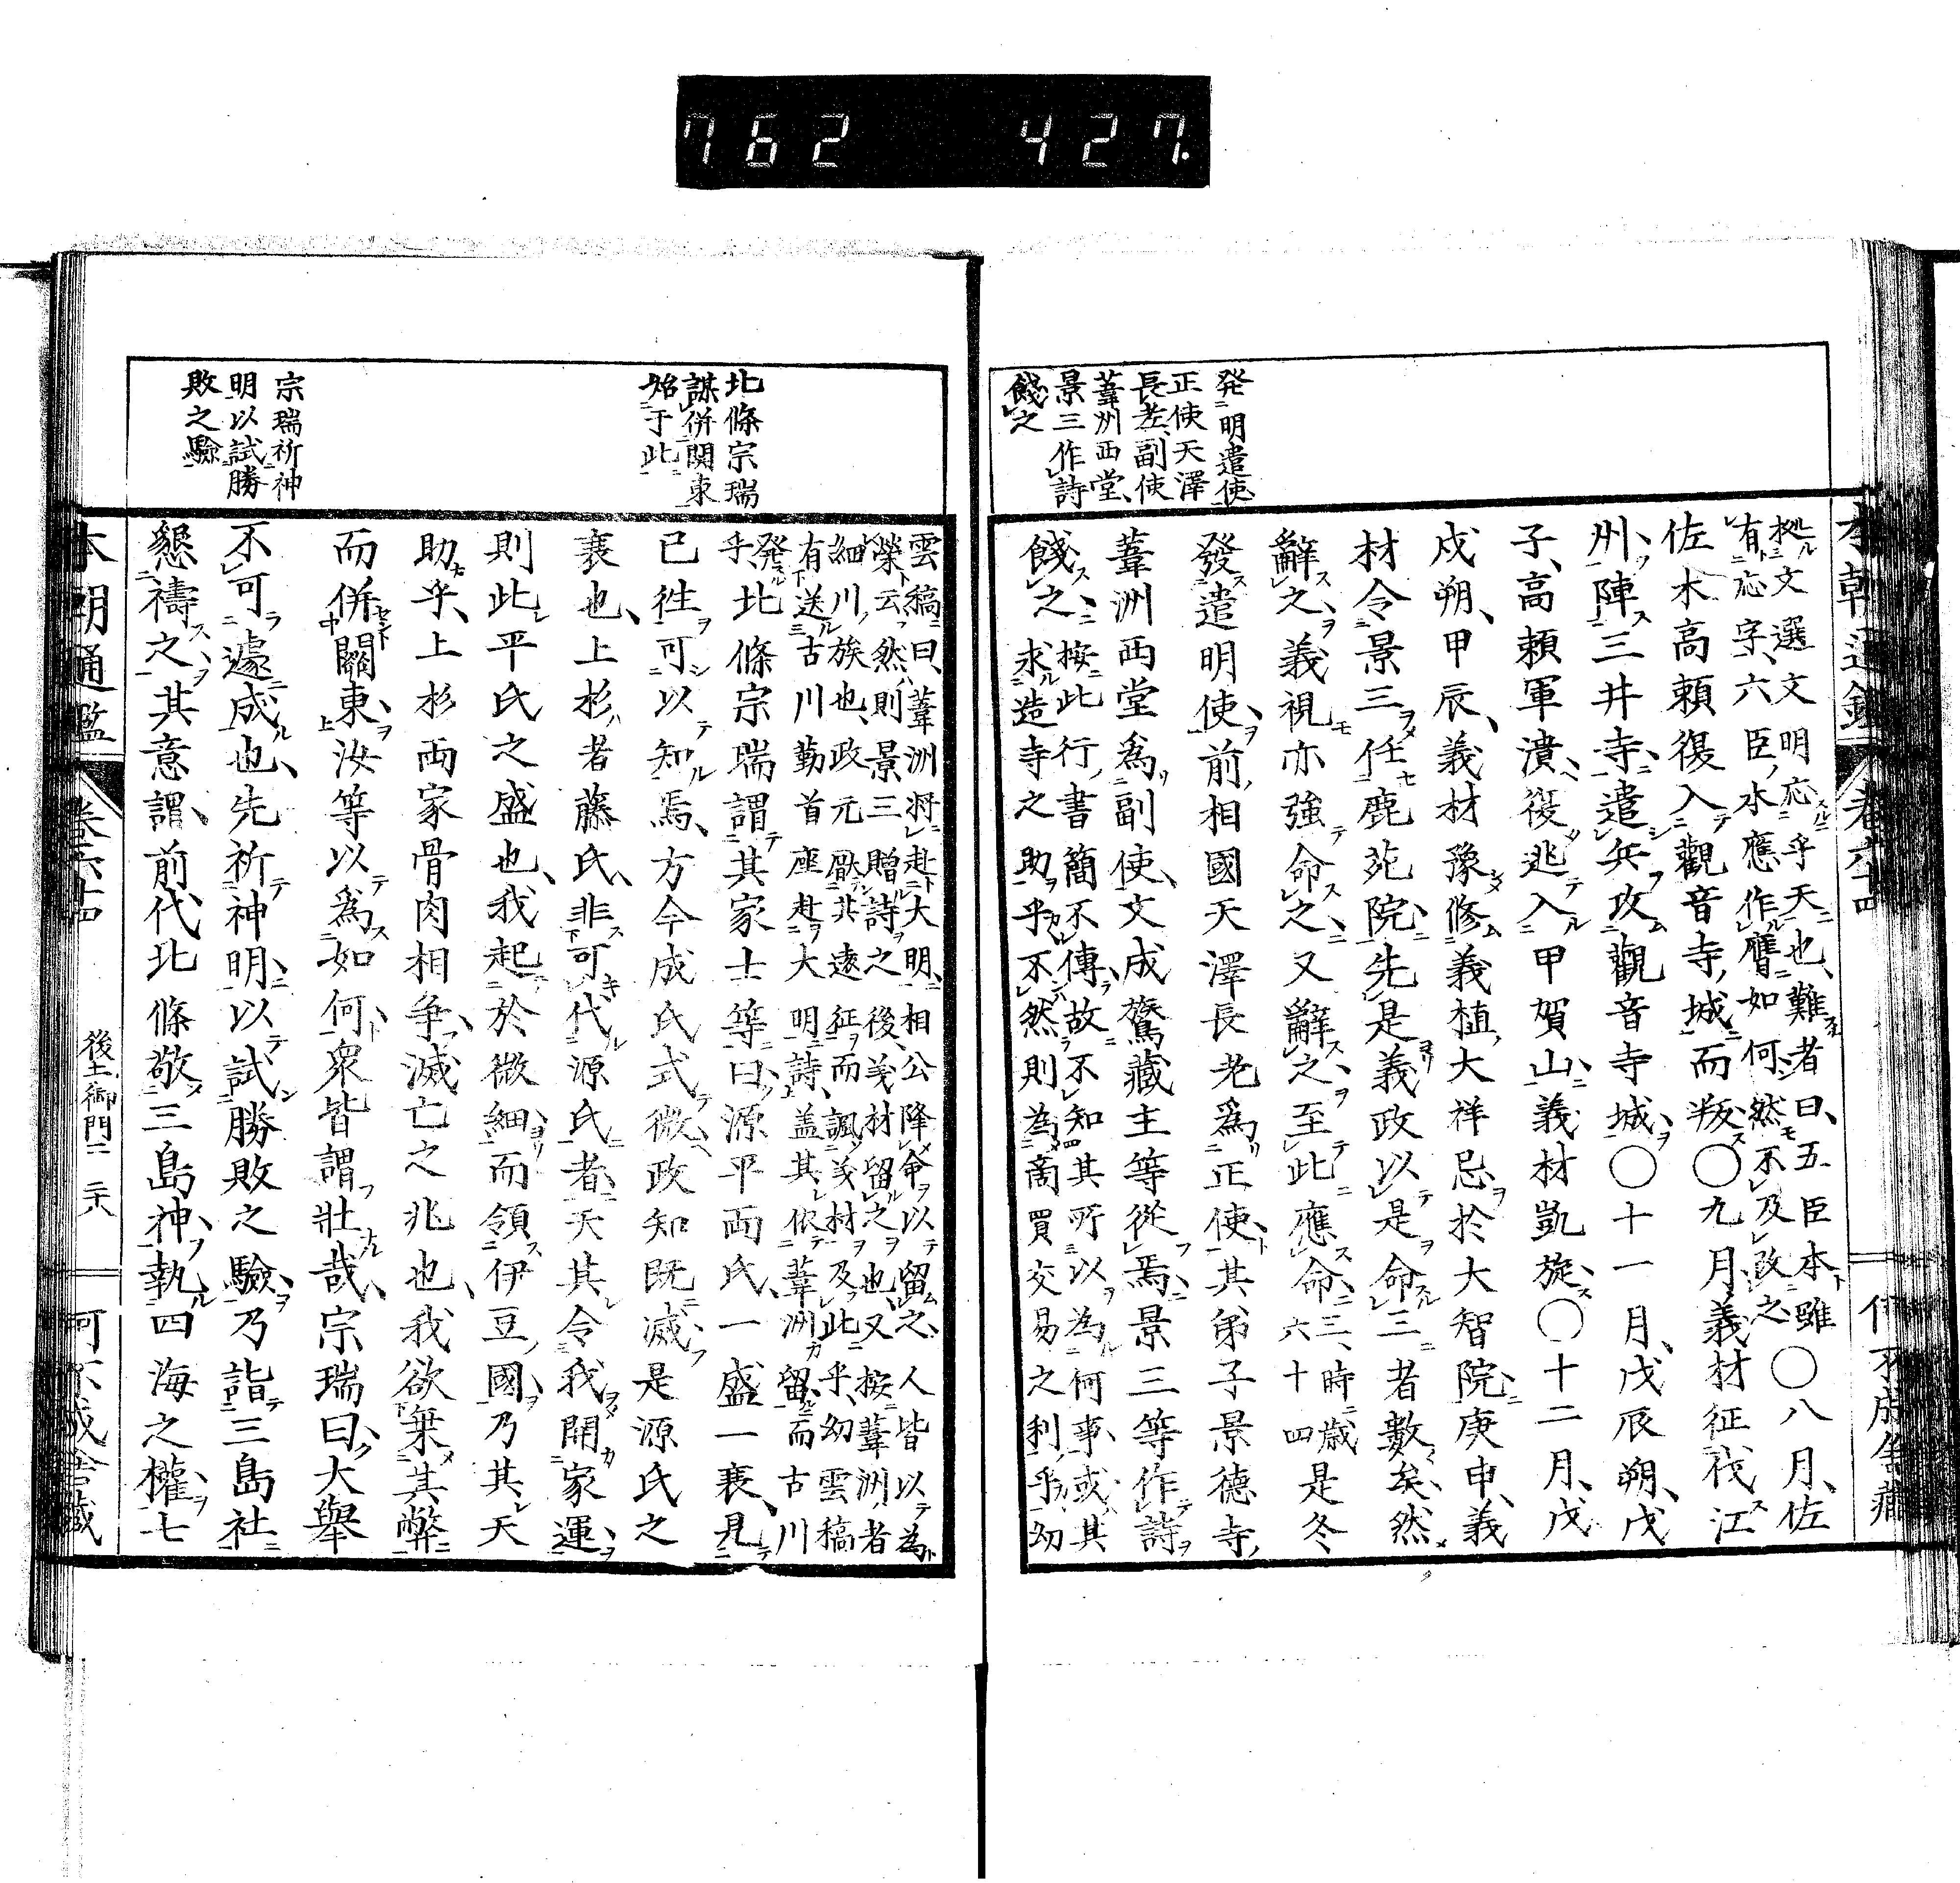 762 427.
発明遣使
正使天澤
長老、副使
葦洲西堂、
景三作詩
餞之
拠文選文明応乎天也、難者曰、五臣本雖
有応字、六臣、水應作膺如何然不及改之〇八月、佐
佐木高頼復入觀音寺城而叛〇九月義材征伐江
州、陣三井寺、遣兵攻觀音寺城、〇十一月、戊辰朔、戊
子、高頼軍潰、復逃入甲賀山、義材凱旋、〇十二月、戊
戌朔、甲辰、義材豫修義植大祥忌於大智院、庚申、義
材令景三任鹿苑院、先是義政以是命三者數矣、然
辭之、義視亦強命之、又辭之、至此應命、三、時歳六十四是冬
發遣明使、前相國天澤長老爲正使、其弟子景德寺
葦洲西堂爲副使、文成鷟藏主等從焉、景三等作詩
餞之、按此行書簡不傳、故不知其所以為何事、或其
求造寺之助乎、不然則為商買交易之利乎、幻
北條宗瑞
謀併関東
始于此
宗瑞祈神
明以試勝
敗之驗
雲稿曰、葦洲将赴大明、相公降命以留之、人皆以為
榮云、然則景三贈詩之後、義材留之也、又按葦洲者
細川族也、政元厭其遠征而諷義材及此乎、幻雲稿
有送古川勤首座赴大明詩、盖其依葦洲留而古川
発乎、北條宗瑞謂其家士等曰、源平両氏、一盛一衰、見
已徃可以知焉、方今成氏式微政知既滅、是源氏之
衰也、上杉者藤氏、非可代源氏者、天其令我開家運、
則此平氏之盛也、我起於微細而領伊豆國、乃其天
助乎、上杉両家骨肉相争、滅亡之兆也、我欲乗其弊
而併關東、汝等以爲如何、衆皆謂壯哉、宗瑞曰、大舉
不可遽成也、先祈神明、以試勝敗之驗、乃詣三島社
懇禱之、其意謂、前代北條敬三島神、執四海之權、七
本朝通鑑 卷六十四 後土御門二 二十八